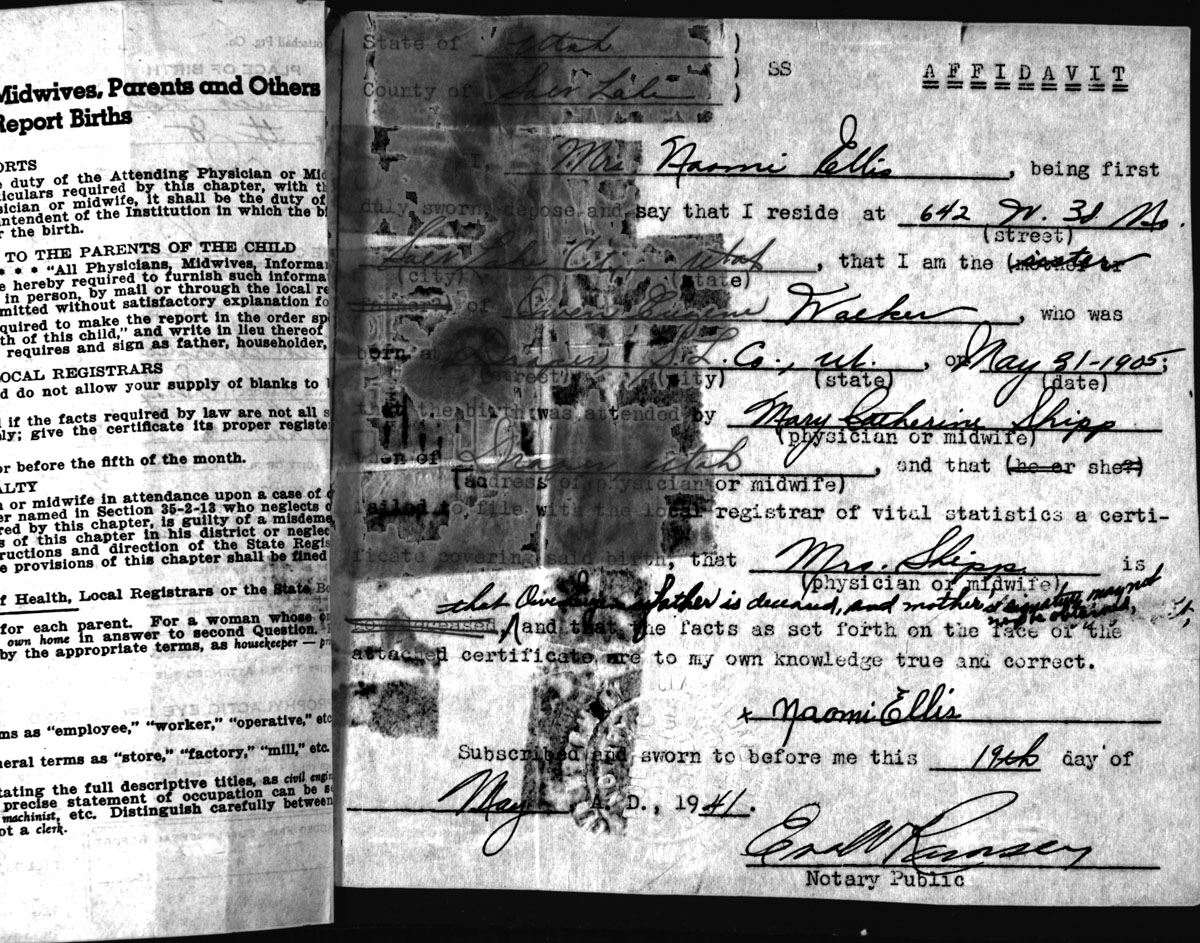 Midwives, Parents and Others
Report Births
ORTS
duty of the Attending Physician or Mid
ticulars required by this chapter, with th
sician or midwife, it shall be the duty of
ntendent of the Institution in which the bi
r the birth.
TO THE PARENTS OF THE CHILD
* * * "All Physicians, Midwives, Informa
e hereby required to furnish such informa
in person, by mail or through the local re
mitted without satisfactory explanation fo
quired to make the report in the order spe
th of this child," and write in lieu thereof
requires and sign as father, householder,
OCAL REGISTRARS
d do not allow your supply of blanks to
d if the facts required by law are not all s
ly; give the certificate its proper registe
or before the fifth of the month.
ALTY
n or midwife in attendance upon a case of
er named in Section 35-2-13 who neglects o
red by this chapter, is guilty of a misdeme
s of this chapter in his district or neglec
tructions and direction of the State Regis
e provisions of this chapter shall be fined
f Health, Local Registrars or the State Bo
for each parent. For a woman whose
own home in answer to second Question.
by the appropriate terms, as housekeeper —
ms as "employee," "worker," "operative," etc
neral terms as "store," "factory," "mill," etc.
tating the full descriptive titles, as civil engin
precise statement of occupation can be s
machinist, etc. Distinguish carefully between
ot a clerk.
State of Utah )
SS
County of Salt Lake )
AFFIDAVIT
I, Mrs Naomi Ellis, being first
duly sworn, depose and say that I reside at 642 W. 3d No.
(street)
Salt Lake City, Utah, that I am the (sister
(city) (state)
of Owen Eugene Walker, who was
born at Draper, S.L. Co., Ut., on May 31-1905;
(street) (city) (state) (date)
that the birth was attended by Mary Catherine Shipp
(physician or midwife)
then of Draper Utah, and that (he or she?)
(address of physician or midwife)
failed to file with the local registrar of vital statistics a certi-
ficate covering said birth, that Mrs. Shipp is
(physician or midwife)
that Owen father is deceased, and mother's signature may not
now be obtained,
deceased, and that the facts as set forth on the face of the
attached certificate are to my own knowledge true and correct.
x Naomi Ellis
Subscribed and sworn to before me this 19th day of
May A. D., 1941.
Ramsey
Notary Public